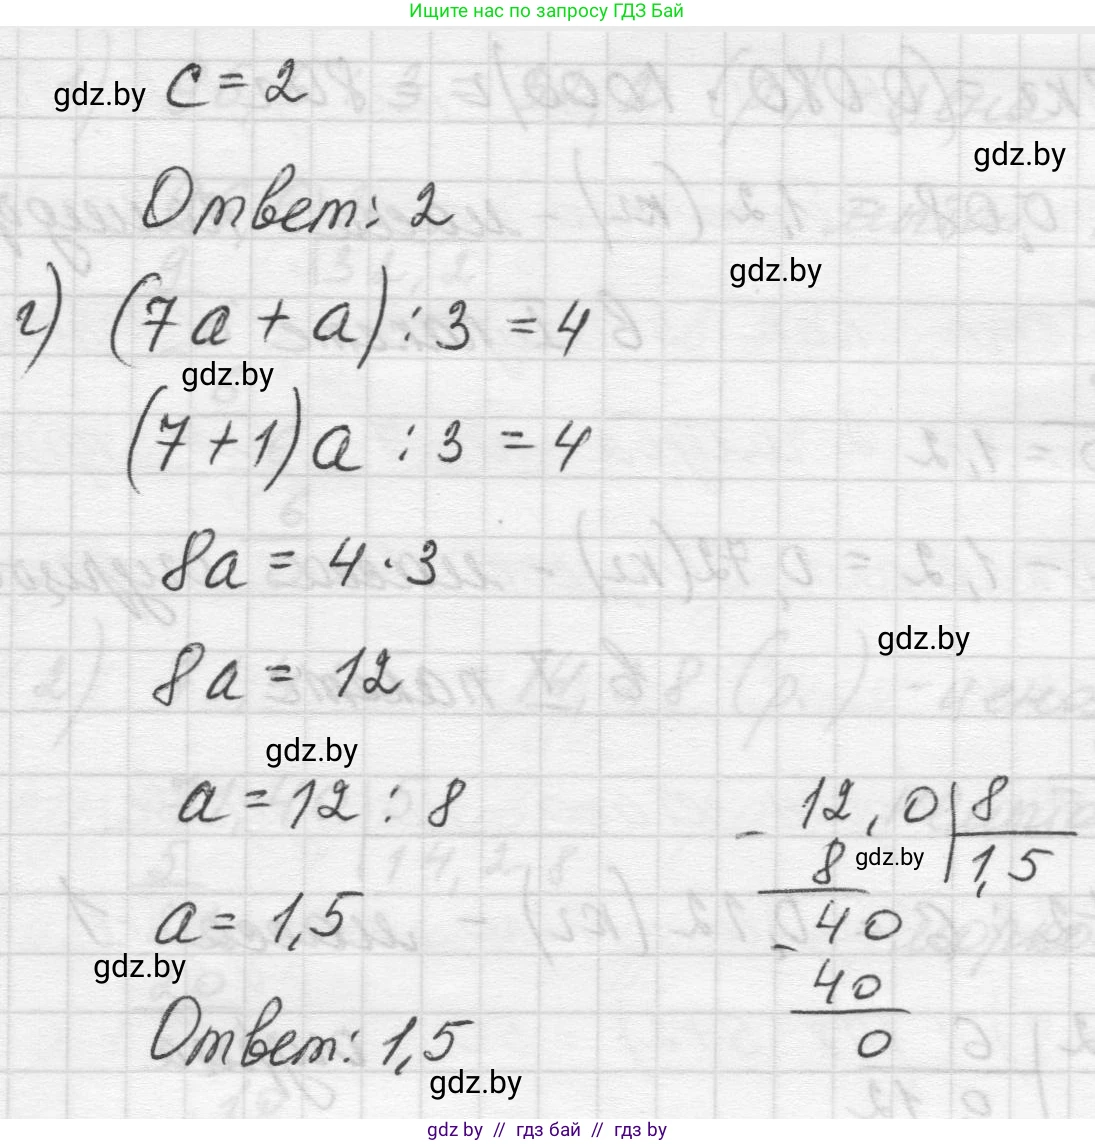 Ищите нас по запросу ГДЗ Бай
c = 2
gdz.by
gdz.by
Ответ: 2
gdz.by
г) (7a + a) : 3 = 4
gdz.by
(7 + 1) a : 3 = 4
8a = 4 · 3
gdz.by
8a = 12
gdz.by
a = 12 : 8
12,0 | 8
- 8 gdz.by 1,5
40
a = 1,5
gdz.by
- 40
0
Ответ: 1,5
gdz.by
gdz.by // гдз бай // гдз by